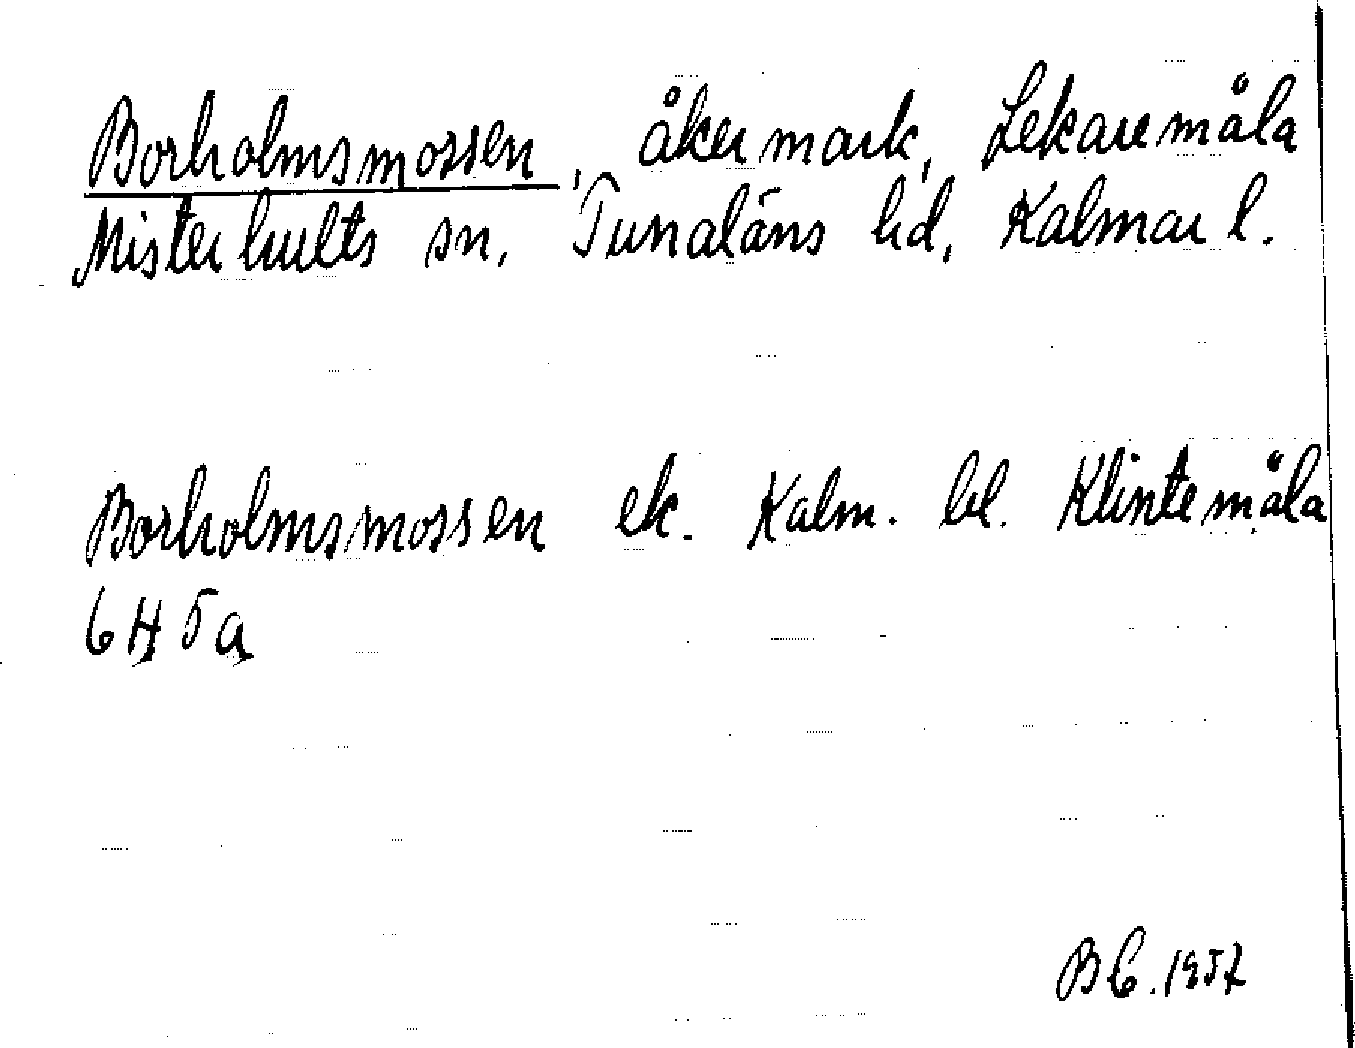 Borholmsmossen, åkermark, Lekaremåla
Misterhults sn, Tunaläns hd, Kalmar l.
Borholmsmossen ek. Kalm. bl. Klintemåla
6H 5a
BC. 1957